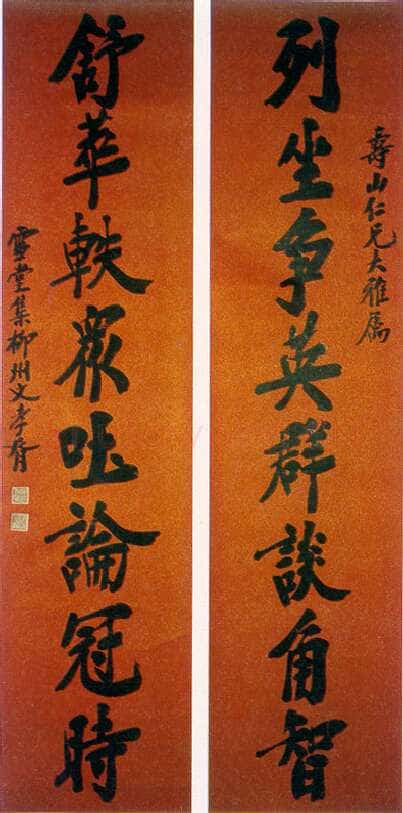 列坐争英群談角智
壽山仁兄大雅属
舒華軼衆吐論冠時
靈堂集柳州文孝胥